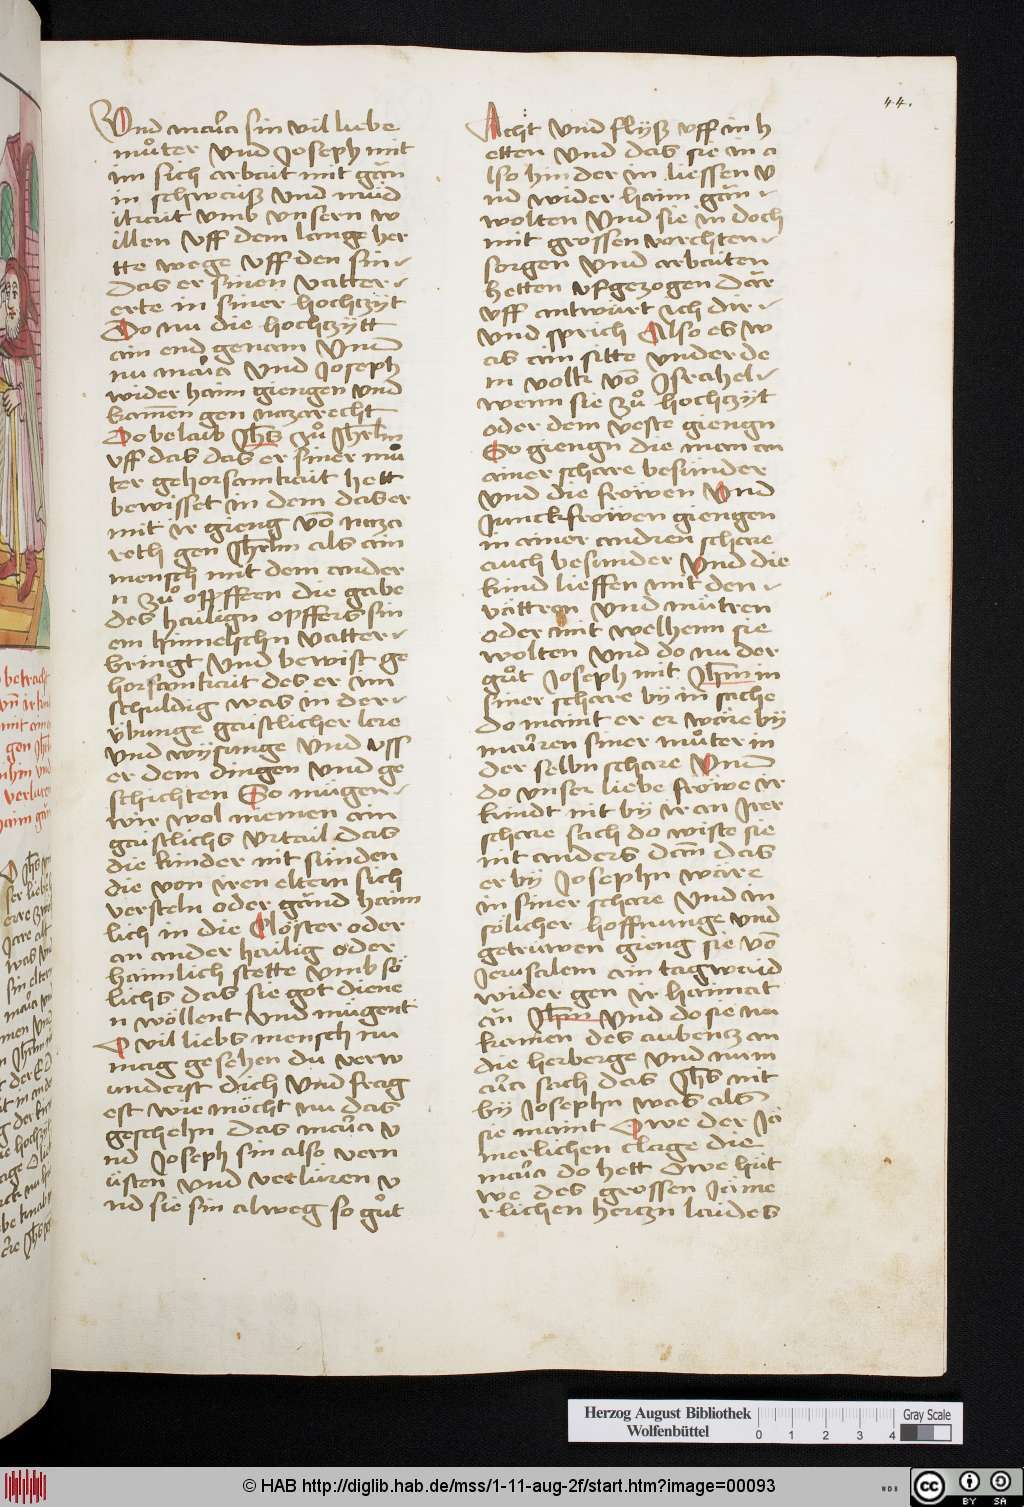 44.
Vnd maria sin vil liebe
muͦter vnd Joseph mit
im sich arbait mit gän
in schwaiß vnd müd
ikait vmb vnsern w
illen vff dem lange her
tte wege vff den sin
das er sinen vatter
erte in siner hochzÿt
Do nu die hochzÿtt
ain end genam Vnd
nu maria vnd Joseph
wider haim giengen vnd
kamen gen nazarecht
Do belaib Jhs zuͦ Jhrlm
vff das das er siner muͦ
ter gehorsamkait hett
bewisset in dem das er
mit ir gieng vō naza
reth gen Jhrlm als ain
mensch mit dem ander
n zuͦ opffren die gabe
des hailign opffers sin
em himelschn vatter
bringt vnd bewist ge
horsamkait des er im
schuldig was in der
ÿbunge gaistlicher lere
vnd wÿsunge vnd vss
er dem dingen vnd ge
schichten So mügen
wir wol niemen ain
gaistlichs vrtail das
die kinder nit sünden
die von iren eltern sich
versteln oder gänd haim
lich in die Clöster oder
an ander hailig oder
haimlich stette vmb sö
lichs das sie got diene
n wöllent vnd mügent
O vil liebs mensch nu
mag geschen du verw
underst dich vnd frag
est wie möcht nu das
geschehn das maria v
nd Joseph sin also vern
üsten vnd verlüren v
nd sie sin alweg so guͦt
Acht vnd flÿß vff in h
etten vnd das sie in a
lso hinder in liessen v
nd wider haim gän
wolten Vnd sie in doch
mit grossen vorchten
sorgen vnd arbaiten
hetten vfgezogen Dar
vff antwürt ich dir
vnd sprich Also es w
as ain sitte vnder de
m volk vō Jsrahel
wenn sie zuͦ hochzÿt
oder dem veste giengn
So giengn die man an
ainer schare besunder
vnd die frowen Vnd
junckfrowen giengen
in ainer andren schare
auch besunder Vnd die
kind lieffen mit den
vättren vnd mütren
oder mit welhem sie
wolten vnd do nu der
guͦt Joseph mit Jhm in
siner schare bÿ in sache
do maint er er wäre bÿ
mariren siner muͦter in
der selbn schare Vnd
do vnser liebe frowe ir
kindt nit bÿ ir an irer
schare sach do wiste sie
nit anders dan das
er bÿ Josephn wäre
in siner schare vnd in
sölicher hoffnunge vnd
getruwen gieng sie vō
Jerusalem ain tagwaid
wider gen ir haimat
än Jhm Vnd do sie nu
kamen des aubentz an
die herberge vnd nun
aria sach das Jhs nit
bÿ Josephn was als
sie maint O we der jä
merlichen clage die
maria do hett O we hüt
we des grossen jäme
rlichen hertzn laides
betracht
Herzog August Bibliothek
Wolfenbüttel
0 1 2 3 4
Gray Scale
© HAB http://diglib.hab.de/mss/1-11-aug-2f/start.htm?image=00093
cc BY SA